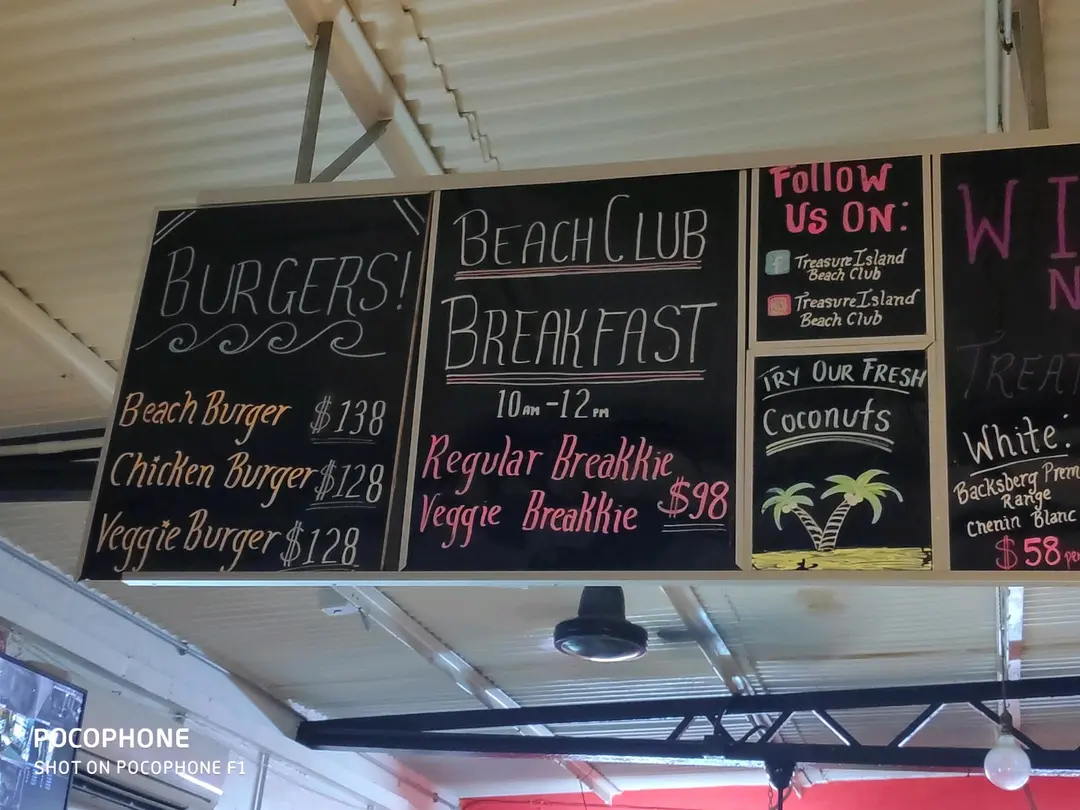 BURGERS!
Beach Burger $138
Chicken Burger $128
Veggie Burger $128
BEACH CLUB
BREAKFAST
10 AM - 12 PM
Regular Breakkie
Veggie Breakkie $98
Follow
Us On:
Treasure Island
Beach Club
Treasure Island
Beach Club
TRY OUR FRESH
Coconuts
WI
N
TREAT
White:
Backsberg Prem
Range
Chenin Blanc
$58 per
POCOPHONE
SHOT ON POCOPHONE F1